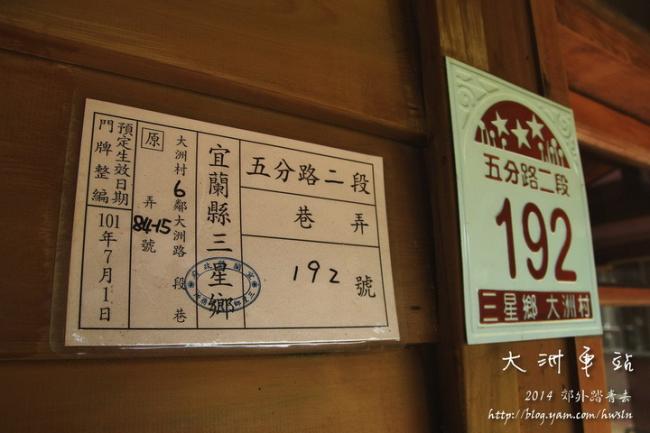 五分路二段
巷 弄
192 號
宜蘭縣三星鄉
原
大洲村6鄰大洲路 段 巷
弄 84-15 號
預定生效日期
門牌整編
101年7月1日
五分路二段
192
三星鄉 大洲村
大洲車站
2014 郊外踏青去
http://blog.yam.com/hwsln